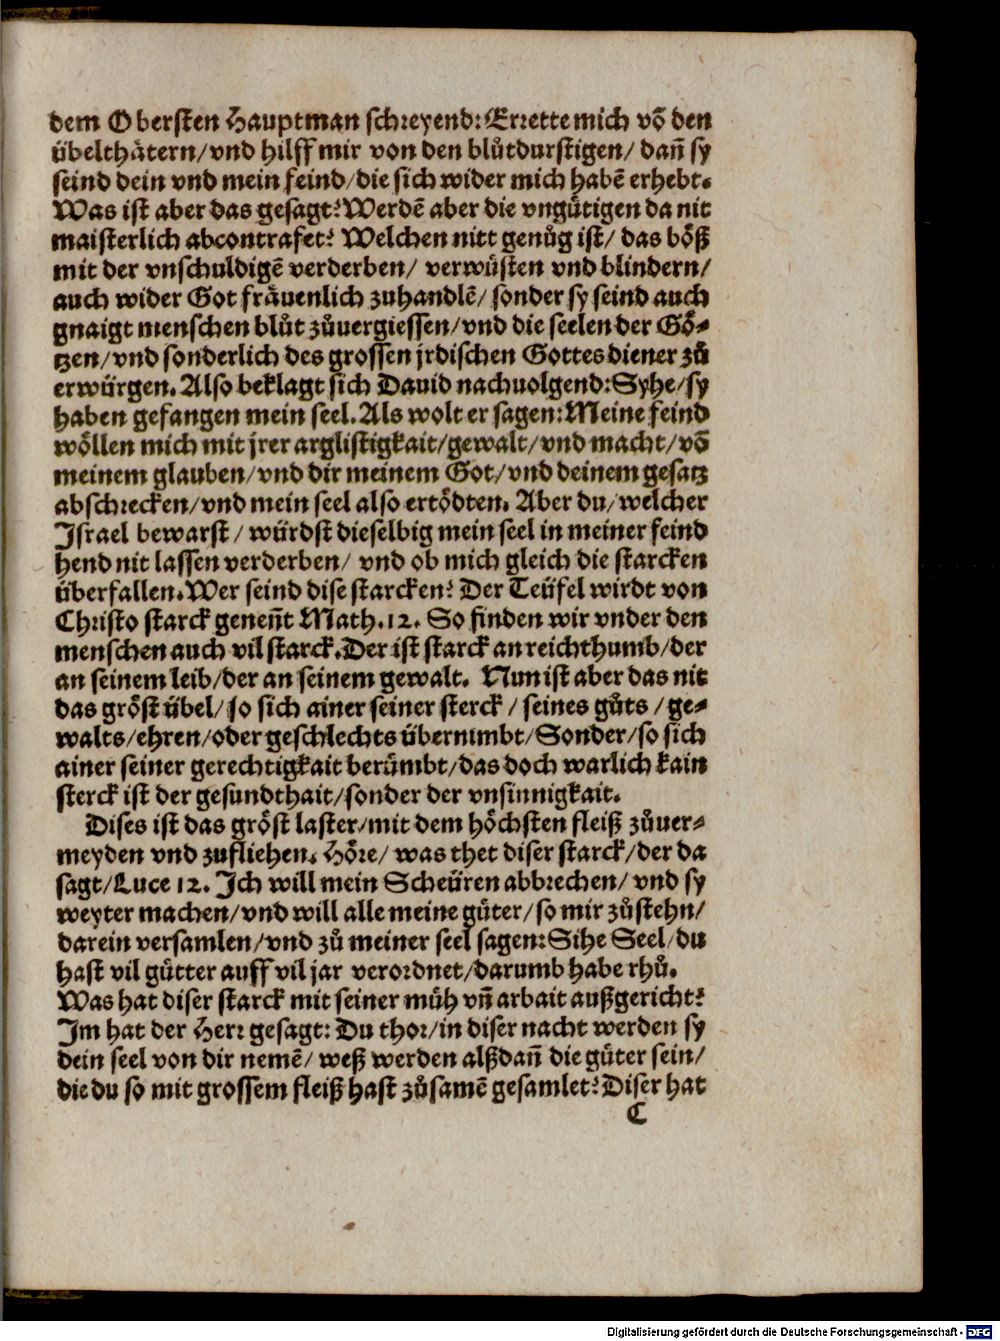 dem Obersten Hauptman schreyend: Errette mich võ den
übelthätern/ vnd hilff mir von den blůtdurstigen/ dañ sy
seind dein vnd mein feind/ die sich wider mich habẽ erhebt.
Was ist aber das gesagt? Werdẽ aber die vngůtigen da nit
maisterlich abcontrafet? Welchen nitt genůg ist/ das böß
mit der vnschuldigẽ verderben/ verwüsten vnd blindern/
auch wider Got fräuenlich zuhandlẽ/ sonder sy seind auch
gnaigt menschen blůt zůuergiessen/ vnd die seelen der Gö⸗
tzen/ vnd sonderlich des grossen jrdischen Gottes diener zů
erwürgen. Also beklagt sich Dauid nachuolgend: Syhe/ sy
haben gefangen mein seel. Als wolt er sagen: Meine feind
wöllen mich mit jrer arglistigkait/ gewalt/ vnd macht/ võ
meinem glauben/ vnd dir meinem Got/ vnd deinem gesatz
abschrecken/ vnd mein seel also ertödten. Aber du/ welcher
Israel bewarst/ würdst dieselbig mein seel in meiner feind
hend nit lassen verderben/ vnd ob mich gleich die starcken
überfallen. Wer seind dise starcken? Der Teüfel wirdt von
Christo starck geneñt Math. 12. So finden wir vnder den
menschen auch vil starck. Der ist starck an reichthumb/ der
an seinem leib/ der an seinem gewalt. Nun ist aber das nit
das gröst übel/ so sich ainer seiner sterck/ seines gůts/ ge⸗
walts/ ehren/ oder geschlechts übernimbt/ Sonder/ so sich
ainer seiner gerechtigkait berümbt/ das doch warlich kain
sterck ist der gesundthait/ sonder der vnsinnigkait.
Dises ist das gröst laster/ mit dem höchsten fleiß zůuer⸗
meyden vnd zufliehen. Höre/ was thet diser starck/ der da
sagt/ Luce 12. Ich will mein Scheüren abbrechen/ vnd sy
weyter machen/ vnd will alle meine güter/ so mir zůstehn/
darein versamlen/ vnd zů meiner seel sagen: Sihe Seel/ du
hast vil gütter auff vil jar verordnet/ darumb habe rhů.
Was hat diser starck mit seiner müh vñ arbait außgericht?
Im hat der Herr gesagt: Du thor/ in diser nacht werden sy
dein seel von dir nemẽ/ weß werden alßdañ die güter sein/
die du so mit grossem fleiß hast zůsamẽ gesamlet? Diser hat
C
Digitalisierung gefördert durch die Deutsche Forschungsgemeinschaft - DFG